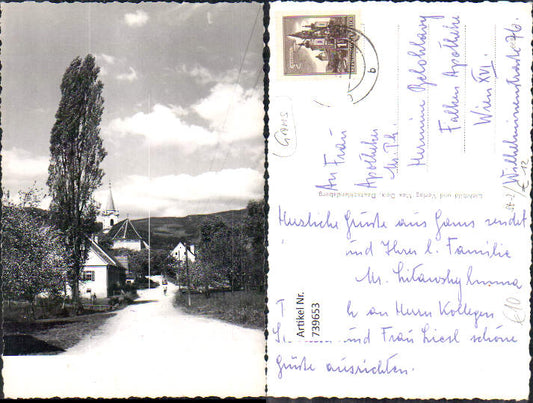 (GAMS)
An Frau
Apotheker
Mr. Ph.
Hermine Belohlavy
Falken Apotheke
Wien XVI.
Wilhelminenstraße 76.
Lichtbild und Verlag Max
Herzliche Grüße aus Gams sendet
und Ihrer l. Familie
Mr.
an Herrn Kollegen
und Frau Liesl schöne
Grüße ausrichten.
Artikel Nr.
739653